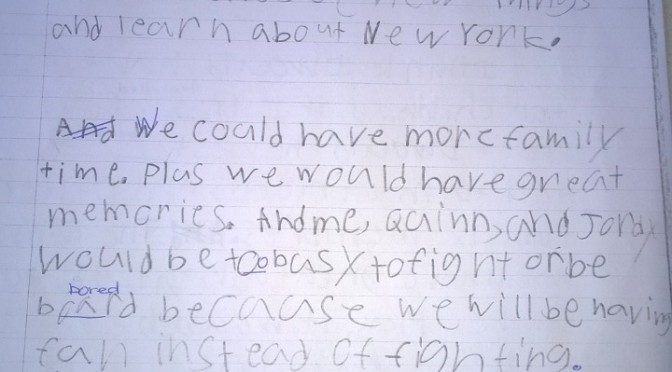 things
and learn about New York.
And We could have more family
time. Plus we would have great
memories. And me, Quinn, and Jordy
would be to busy to fight or be
bored
board because we will be having
fun instead of fighting.